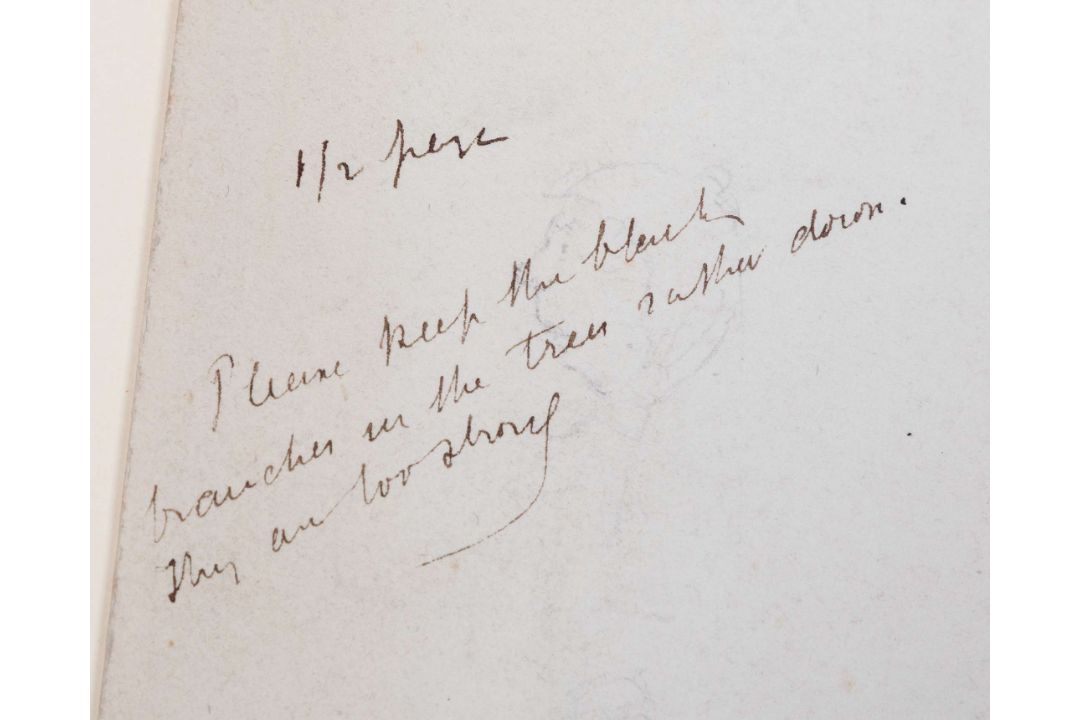 1/2 page
Please keep the black
branches in the trees rather down.
They are too strong